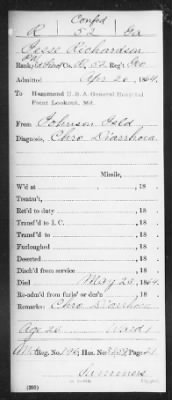 Confed
R 52 Ga
Jesse Richardson
Rank, Co. K, 52 Reg't Geo
Admitted Apr 20, 1864.
To Hammond U.S.A. General Hospital
Point Lookout, Md.
From Johnson Isld
Diagnosis, Chro Diarrhoea
Missile,
W'd at , 18 .
Treatm't,
Ret'd to duty , 18 .
Transf'd to I. C. , 18 .
Transf'd to , 18 .
Furloughed , 18 .
Deserted , 18 .
Disch'd from service , 18 .
Died May 25, 1864.
Re-adm'd from furlo' or des'n , 18 .
Remarks: Chro Diarrhoea
Age 26 Ward 1
Reg. No. ; Hos. No. ; Page 21
Summers